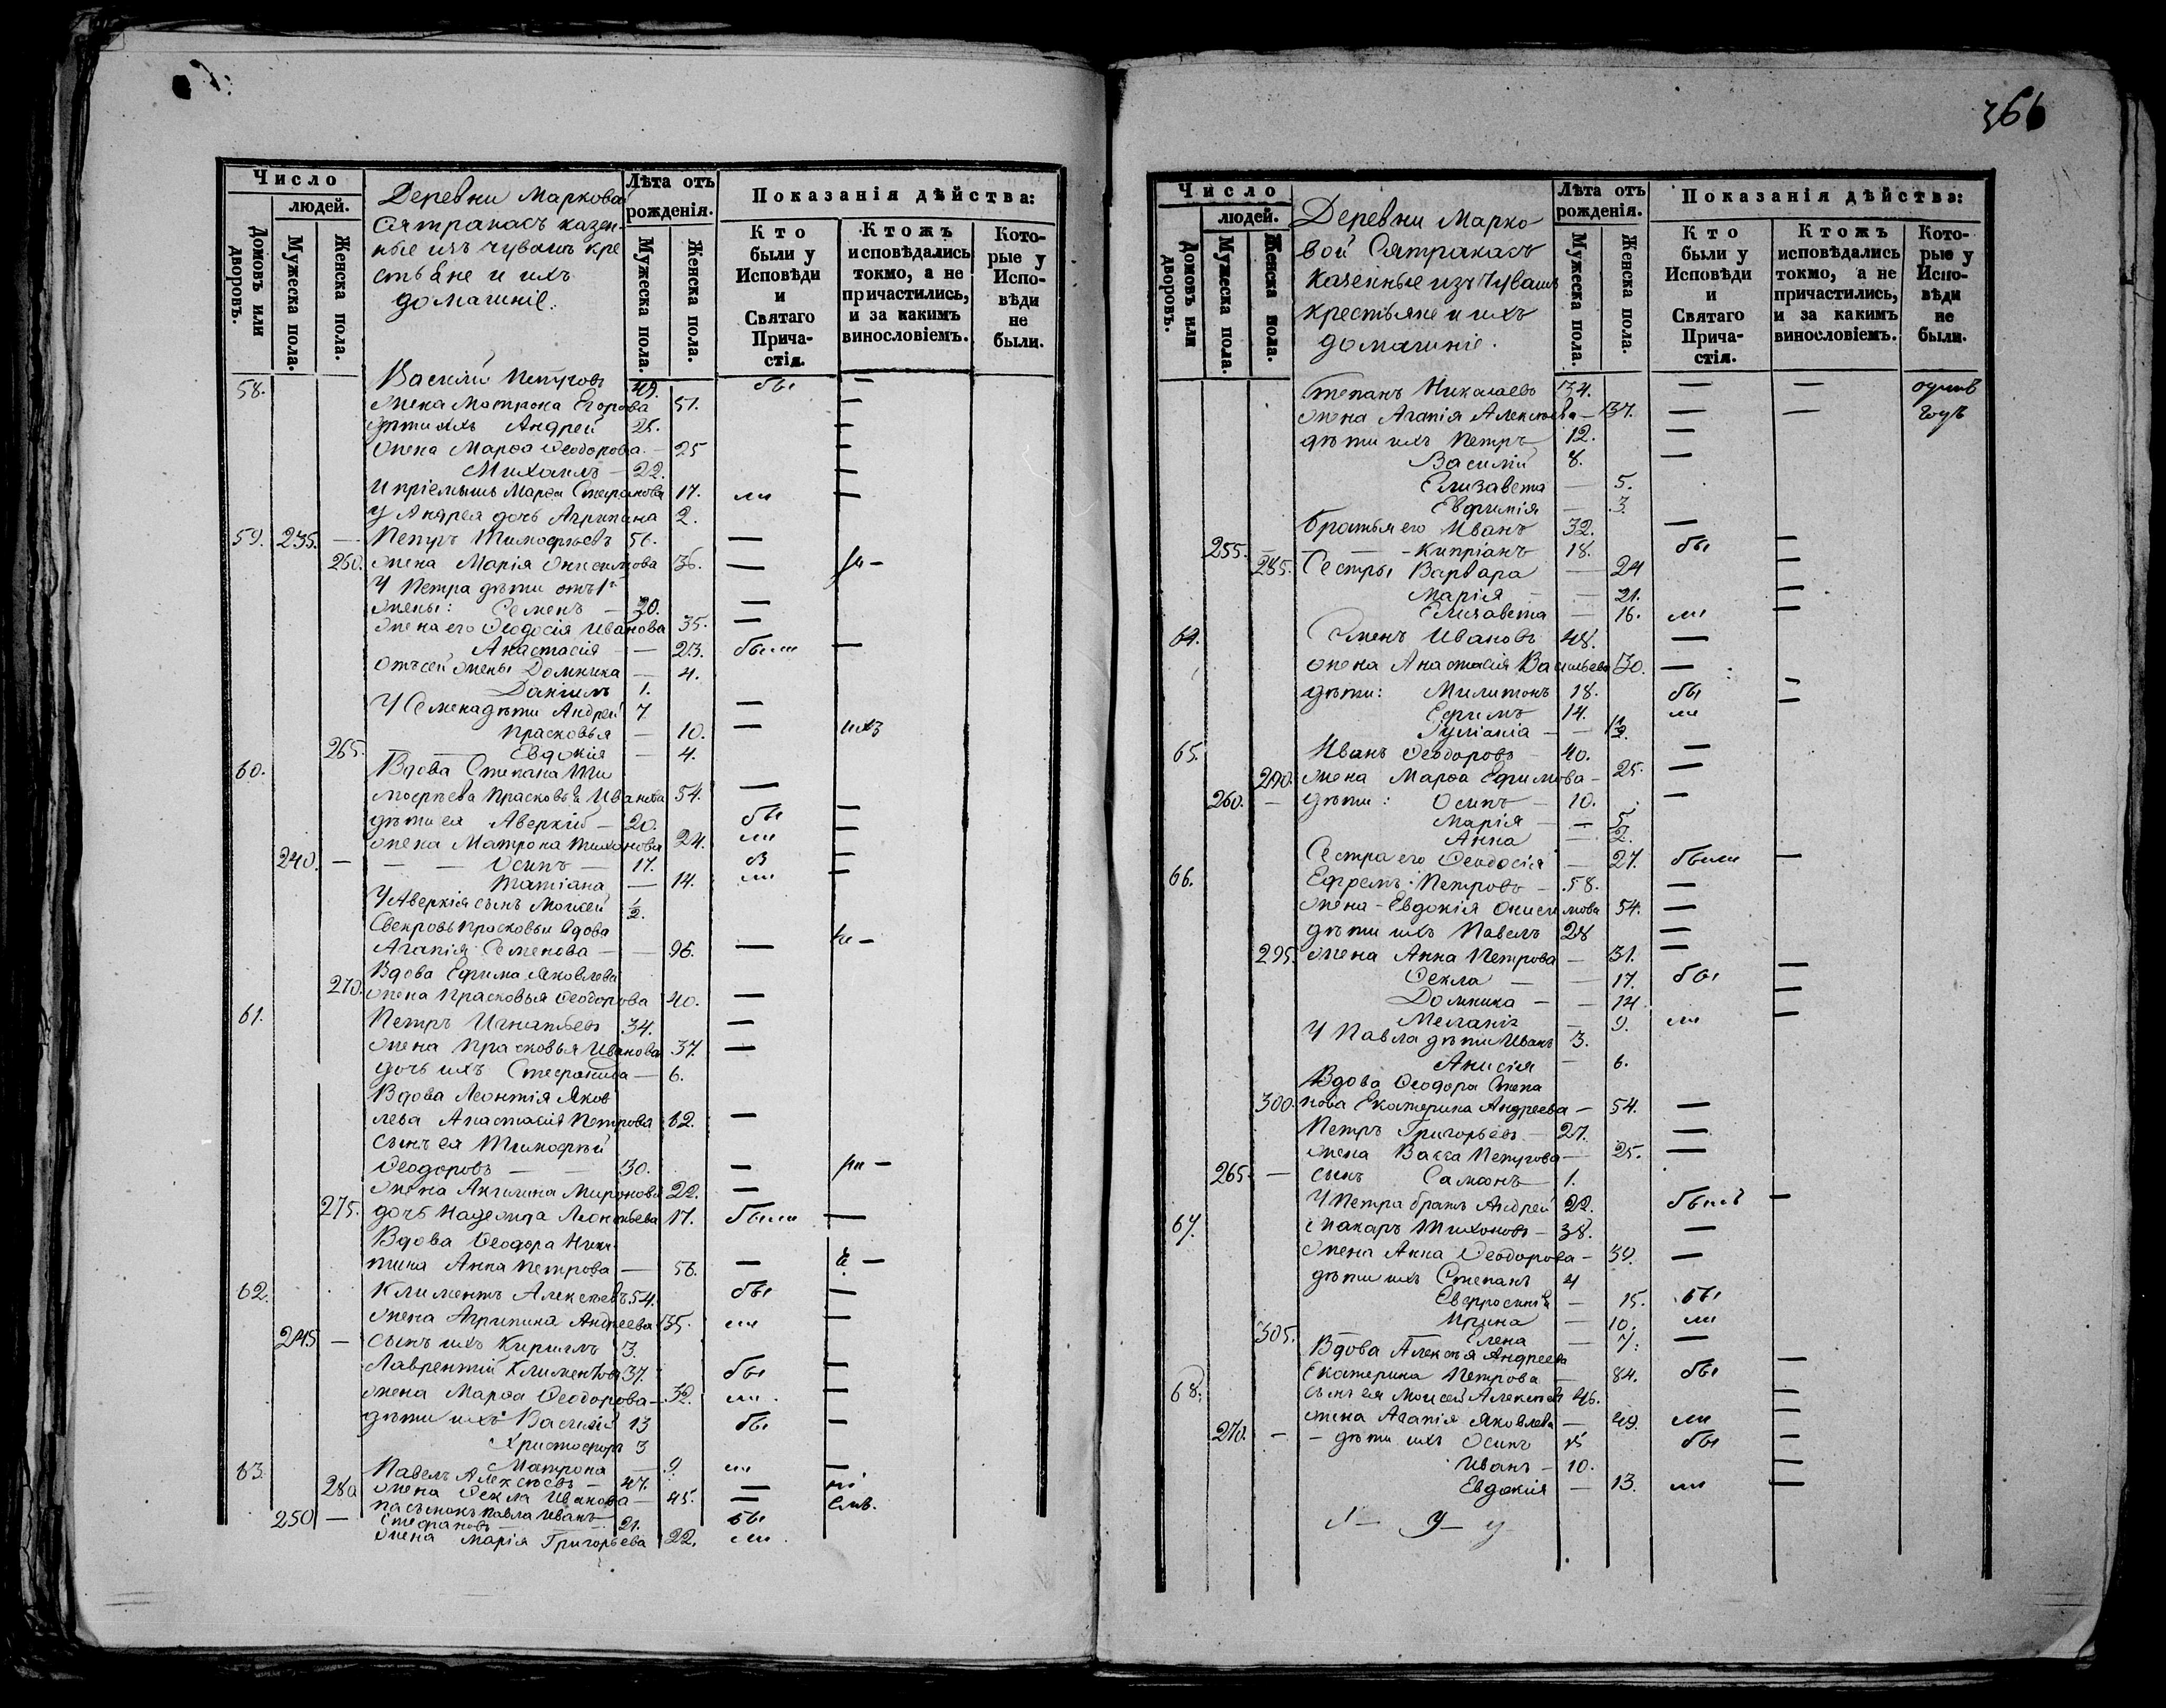 Число
людей.
Домовъ или дворовъ.
Мужеска пола.
Женска пола.
Деревни Маркова
Сятракасъ казен-
ные изъ чувашъ кре
стьяне и ихъ
домашніе.
Лѣта отъ рожденія.
Мужеска пола.
Женска пола.
Показанія дѣйства:
Кто были у Исповѣди и Святаго Прича-стія.
Ктожъ исповѣдались токмо, а не причастились, и за какимъ винословіемъ.
Кото-рые у Испо-вѣди не были.
58. Василій Петровъ 49. бы —
жена Матрона Егорова 51. —
дѣти ихъ Андрей 28. —
жена Марѳа Ѳеодорова — 25 —
Михаилъ — 22. —
И пріемышъ Марѳа Стефанова 17. ли —
У Андрея дочь Агрипина 2.
59. 235. — Петръ Тимоѳеевъ 56. —
260. жена Марія Онисимова 36. —
У Петра дѣти отъ 1й
жены: Семенъ — 20. —
жена его Ѳеодосія Иванова 35. —
Анастасія — — 23. были —
Отъ сей жены Домника — 4.
Даніилъ 1.
У Семена дѣти Андрей 7. —
Прасковья — 10. — ихъ
265. — — Евдокія — 4.
60. Вдова Степана Ти
моѳеева Прасковья Иванова 54. —
дѣти ея Аверкій — 20. бы —
жена Матрона Тихонова 24. ли —
240. — — — Осипъ — 17. —
Татіана — 14. ли —
У Аверкія сынъ Моисей 1/2.
Свекровь Прасковьи вдова
Агапія Семенова — — 96. —
Вдова Ефима Яковлева
270. жена Прасковья Ѳеодорова 40. —
61. Петръ Игнатьевъ 34. —
жена Прасковья Иванова 37. —
дочь ихъ Стефанида — 6.
Вдова Леонтія Яков
лева Анастасія Петрова 62. —
сынъ ея Тимоѳей
Ѳеодоровъ — — 30. —
жена Акилина Миронова 22. —
275. дочь Надежда Леонтьева 17. были —
Вдова Ѳеодора Ники-
тина Анна Петрова — 56. —
62. Климентъ Алексѣевъ 54. бы —
жена Агрипина Андреева 35. ли —
245 — сынъ ихъ Кириллъ 3.
Лаврентій Климентовъ 37. бы —
жена Марѳа Ѳеодорова — 32. ли —
дѣти ихъ Василій 13 бы —
Христофоръ 3
Матрона — 9. ли —
63. Павелъ Алексѣевъ — 47. —
280 жена Ѳекла Иванова — 45. —
пасынокъ Павла Иванъ
250 — Стефановъ — 21. бы
жена Марія Григорьева 22. ли
366
Число
людей.
Домовъ или дворовъ.
Мужеска пола.
Женска пола.
Деревни Марко
вой Сятракасъ
казенные изъ Чувашъ
крестьяне и ихъ
домашніе.
Лѣта отъ рожденія.
Мужеска пола.
Женска пола.
Показанія дѣйства:
Кто были у Исповѣди и Святаго Прича-стія.
Ктожъ исповѣдались токмо, а не причастились, и за какимъ винословіемъ.
Кото-рые у Испо-вѣди не были.
Степанъ Николаевъ 34. — —
жена Агапія Алексѣева — 37. — — годъ
дѣти ихъ Петръ 12. —
Василій 8. —
Елизавета — 5.
Евфимія — 3.
братья его Иванъ 32. —
255. — — — Кипріанъ 18. бы —
285. Сестры Варвара — 24 —
Марія — — 21. —
Елизавета — 16. ли —
64. Семенъ Ивановъ 48. —
жена Анастасія Васильева 50. —
дѣти: Милитонъ 18. бы —
Ефимъ 14. ли —
Іуліанія — — 1/2.
65. Иванъ Ѳеодоровъ — 40. —
290. жена Марѳа Ефимова — 25. —
260. — дѣти: Осипъ — 10. —
Марія — — 5.
Анна — 2.
Сестра его Ѳеодосія — 27. были —
66. Ефремъ Петровъ — 58. —
жена — Евдокія Онисимова 54. —
дѣти ихъ Павелъ 28 —
295. жена Анна Петрова — 31. —
Ѳекла — — 17. бы —
Домника — — 14. —
Меланія — 9. ли —
У Павла дѣти Иванъ 3.
Анисія — 6.
Вдова Ѳеодора Степа
300. нова Екатерина Андреева — 54. —
Петръ Григорьевъ — 27. —
жена Васса Петрова — 25. —
265. — сынъ Самсонъ — 1.
У Петра братъ Андрей 22. былъ —
67. Макаръ Тихоновъ — 38. —
жена Анна Ѳеодорова — 39. —
дѣти ихъ Степанъ 4
Евфросинія — 15. бы
Ирина — 10. ли
305. Елена — 7. —
Вдова Алексѣя Андреева
Екатерина Петрова — 84. бы —
68. сынъ ея Моисей Алексѣевъ 46. —
жена Агапія Яковлева — 49. ли —
270. — — дѣти ихъ Осипъ бы —
Иванъ — 10. —
Евдокія — 13. ли —